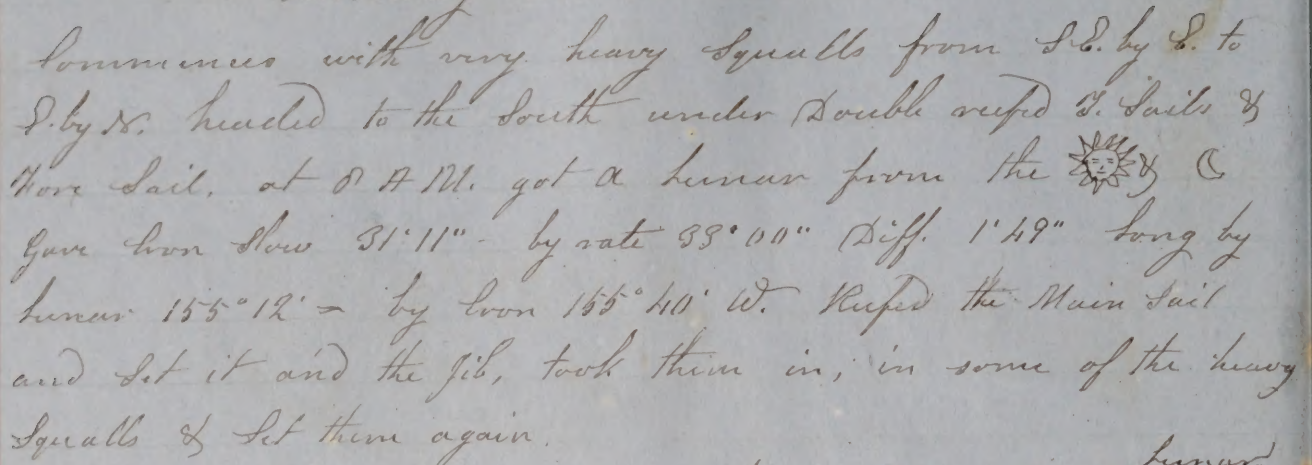 Commences with very heavy Squalls from S.E. by E. to
E. by N. headed to the South under Double reefed T. Sails &
Fore Sail. at 8 A M. got a Lunar from the ☀ & ☾
Gave Cron Slow 31'11" - by rate 33'00" Diff. 1'49" Long by
Lunar 155°12' = by Cron 155°40' W. Reefed the Main Sail
and Set it and the Jib, took them in; in some of the heavy
Squalls & Set them again.
Lunar